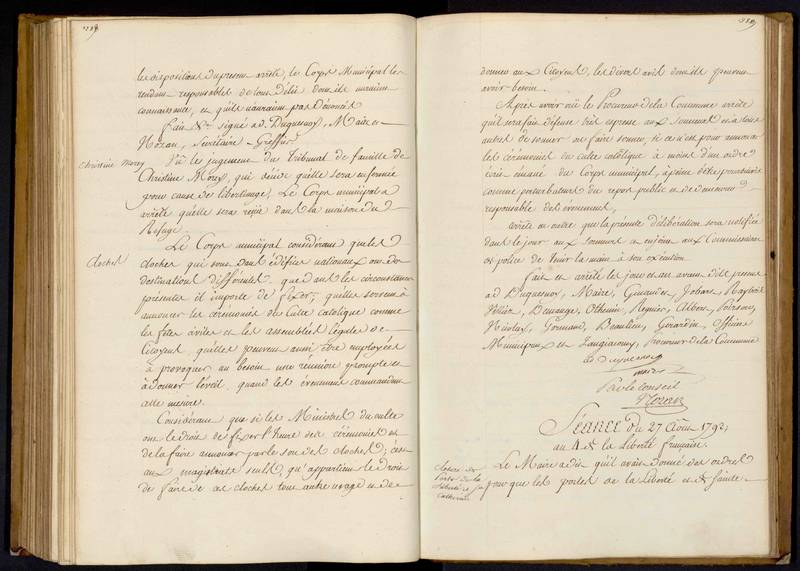 les dispositions du present arrêté, le Corps Municipal les
rendra responsables de tous délits dont ils auraient
connaissance, et qu'ils n'auraient pas dénoncés
Fait &ca signé a.d. Duquesnoy, Maire et
Nozan, Secrétaire Greffier
Christine Morey
Vû le jugement du tribunal de famille de
Christine Morey, qui décide qu'elle sera enfermée
pour cause de libertinage, Le Corps municipal a
arrêté qu'elle sera reçue dans la maison du
Refuge.
cloches
Le Corps municipal considérant que les
cloches qui sont dans édifices nationaux ont des
destinations différentes, que dans les circonstances
présentes il importe de fixer; qu'elles servent à
annoncer les cérémonies du culte catolique comme
les fêtes civiles et les assemblées légales de
Citoyens, qu'elles peuvent aussi être employées
à provoquer au besoin une réunion prompte et
à donner l'éveil, quand les évenemens commandent
cette mesure.
Considérant que si les Ministres du culte
ont le droit de fixer l'heure des cérémonies et
de la faire annoncer par le son des cloches; c'est
aux magistrats seuls qu'appartient le droit
de faire de ces cloches tout autre usage et de
donner aux Citoyens, les divers avis dont ils peuvent
avoir besoin.
Après avoir oüi le Procureur de la Commune arrête
qu'il sera fait défense très expresse aux sonneurs et à tous
autres de sonner ou faire sonner, si ce n'est pour annoncer
les cérémonies du culte catolique à moins d'un ordre
écrit émané du Corps municipal, à peine d'être poursuivis
comme perturbateurs du repos public et de demeurer
responsables des évenemens,
arrête en outre que la présente délibération sera notifiée
dans le jour aux sonneurs et enjoint aux Commissaires
de police de tenir la main à son exécution.
Fait et arrêté les jour et an avant dits présens
ad Duquesnoy, Maire, Jobart,
Demange, Othenin, Regnier, Alber, Poirson,
Nicolas, Beaulieu, Gerardin, Officiers
Municipaux et Procureur de la Commune
ad Duquesnoy
maire
Par le Conseil
Nozan
Séance du 27 Août 1792,
au 4e de la Liberté françoise.
Le Maire a dit qu'il avait donné des ordres
portes de la
Catherine
pour que les portes de la Liberté et Ste Cathe-